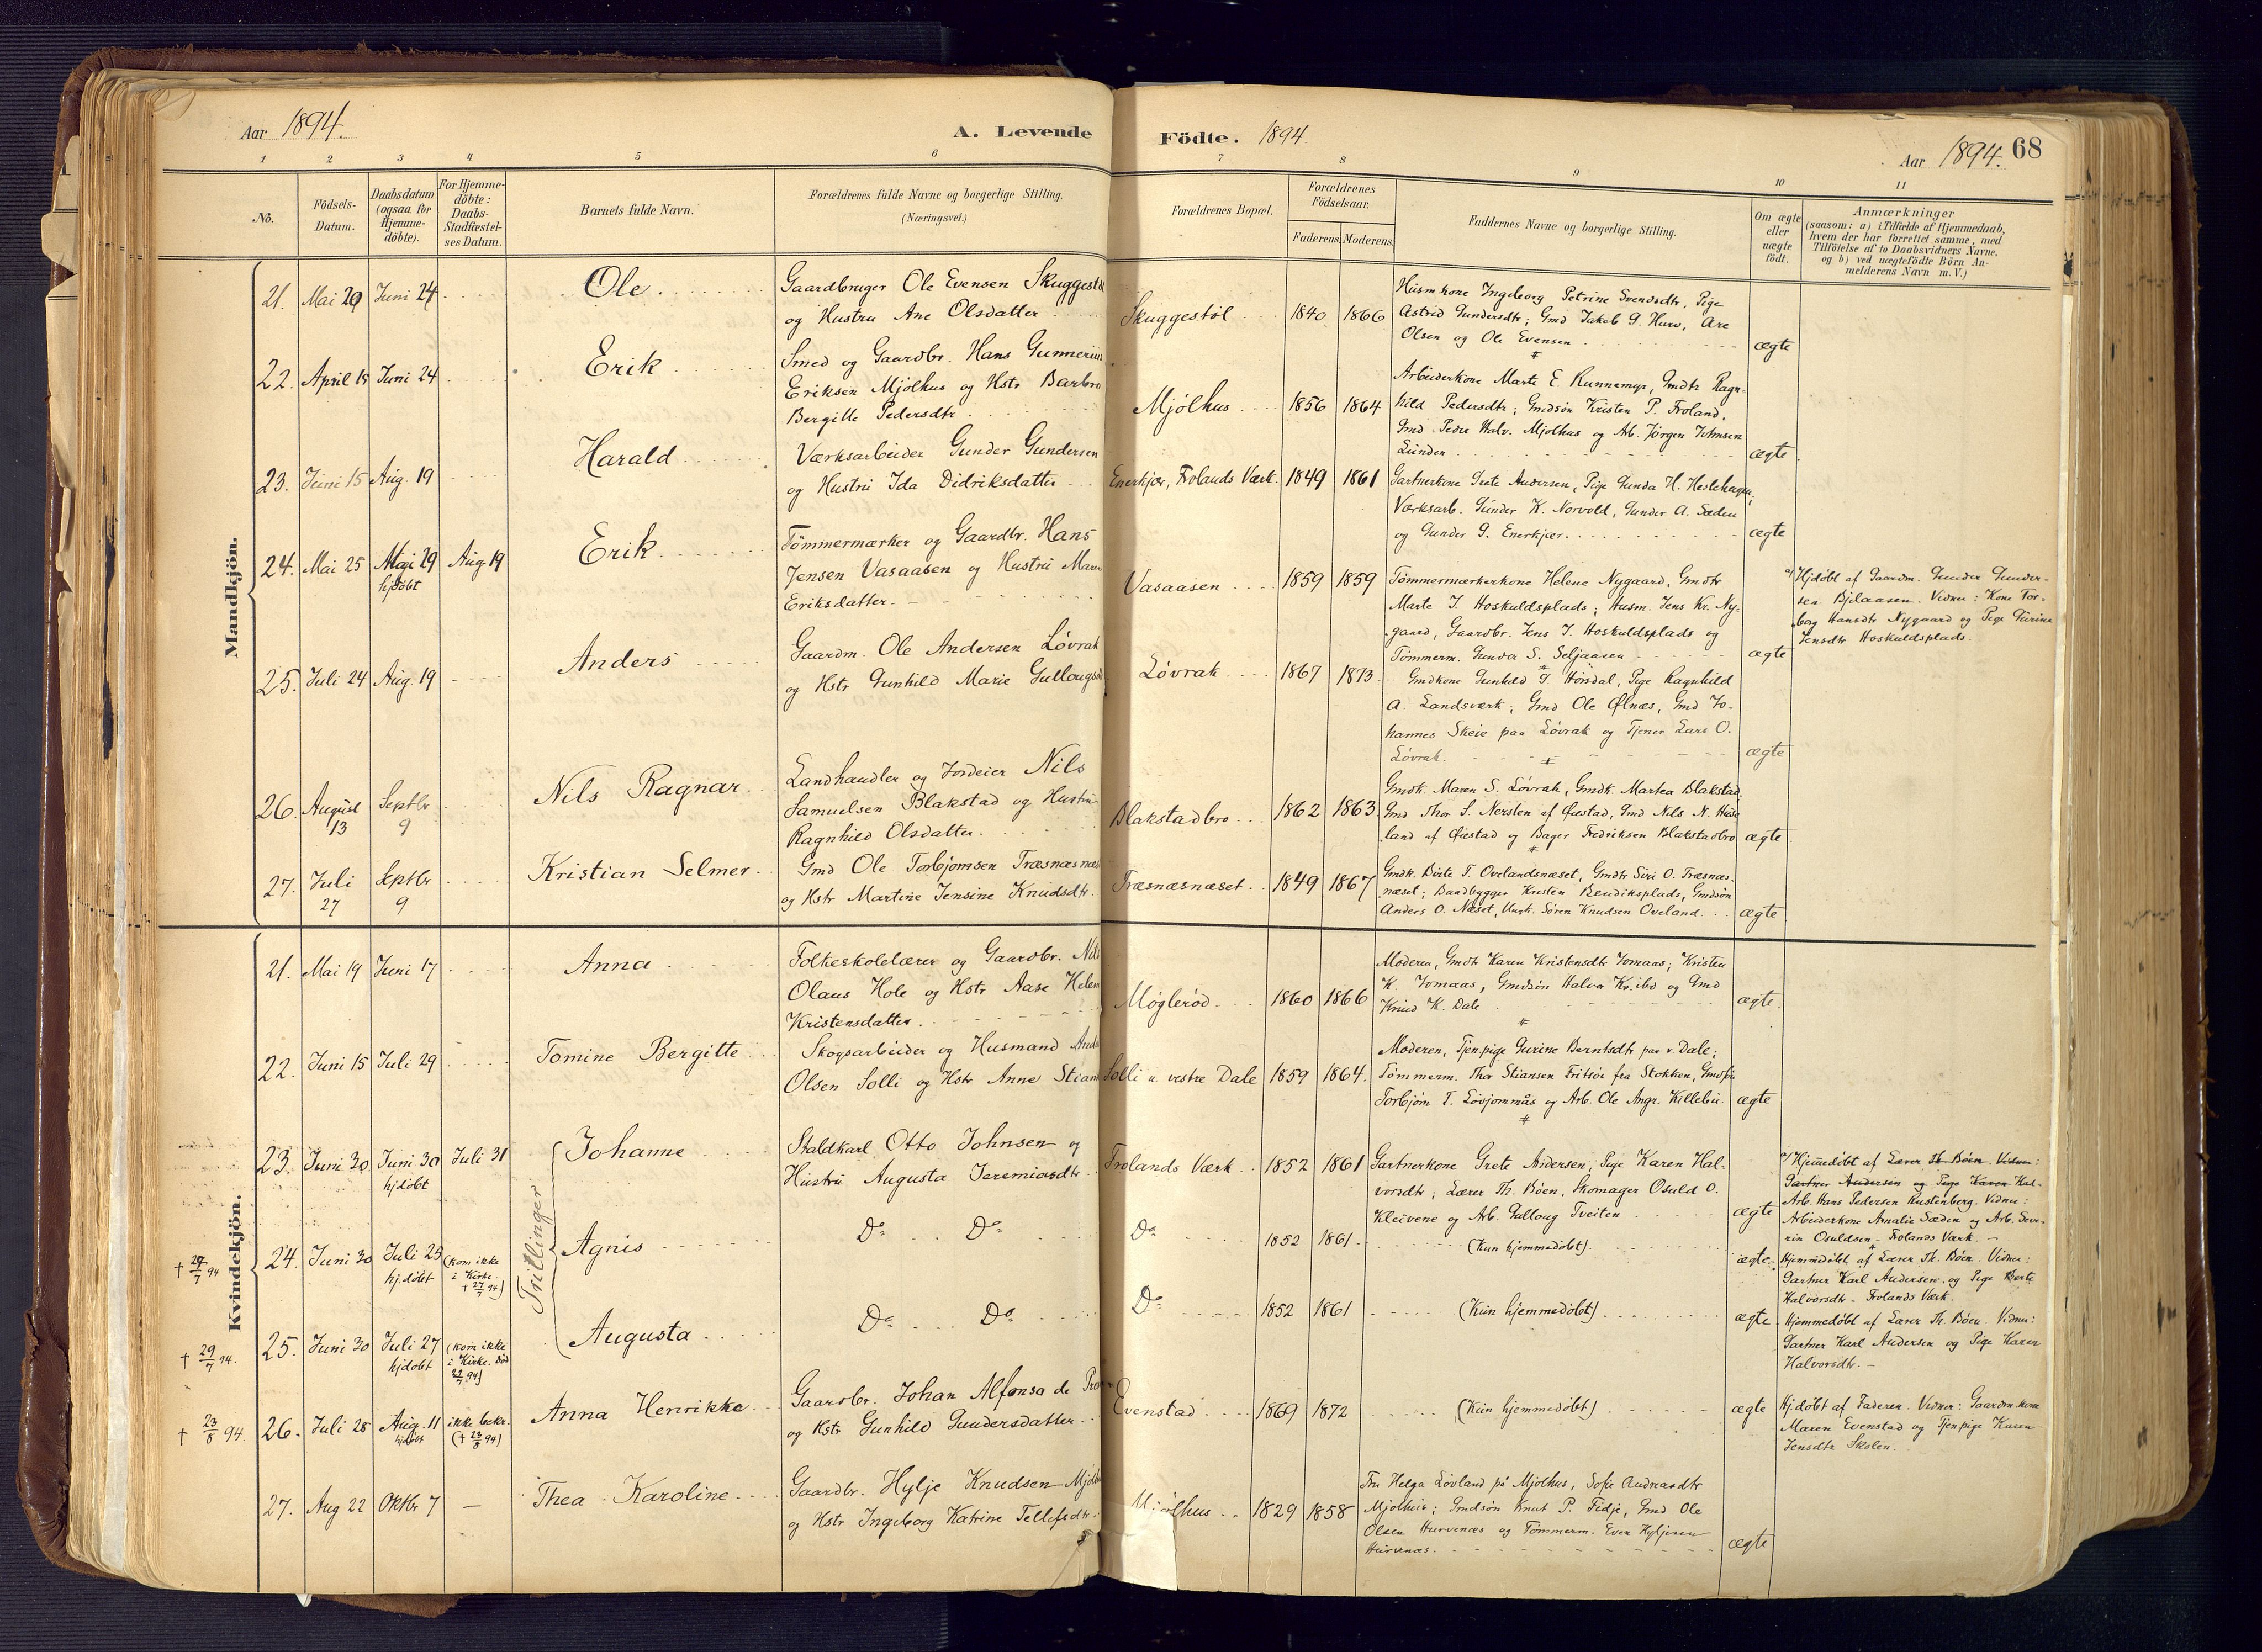 Aar 1894.
A. Levende
Födte. 1894.
Aar 1894. 68
1 2 3 4 5 6 7 8 9 10 11
No.
Födsels-
Datum.
Daabsdatum
(ogsaa for
Hjemme-
döbte).
For Hjemme-
döbte:
Daabs-
Stadfæstel-
ses Datum.
Barnets fulde Navn.
Forældrenes fulde Navne og borgerlige Stilling.
(Næringsvei.)
Forældrenes Bopæl.
Forældrenes
Födselsaar.
Faderens. Moderens.
Faddernes Navne og borgerlige Stilling.
Om ægte
eller
uægte
födt.
Anmærkninger
(saasom: a) i Tilfælde af Hjemmedaab,
hvem der har forrettet samme, med
Tilföielse af to Daabsvidners Navne,
og b) ved uægtefödte Börn An-
melderens Navn m. V.)
Mandkjön.
21. Mai 29 Juni 24 Ole
Gaardbruger Ole Evensen
og Hustru Ane Olsdatter
Skuggestöl 1840 1866
Husmkone Ingeborg Petrine Svendsdtr, Pige
Astrid Gundersdtr; Gmd Jakob G. Hurv, Are
Olsen og Ole Evensen
ægte
22. April 15 Juni 24 Erik
Smed og Gaardbr. Hans Gunnerius
Eriksen Mjölhus og Hstr Barbro
Bergitte Pedersdtr
Mjölhus 1856 1864
Arbeiderkone Marte E. Runnemyr, Gmdtr Ragn-
hild Pedersdtr; Gmdsön Kristen P. Froland,
Gmd Peder Halv. Mjolhus og Arb. Jörgen Johnsen
Lunden
ægte
23. Juni 15 Aug. 19 Harald
Værksarbeider Gunder Gundersen
og Hustru Ida Didriksdatter
Enerkjær, Frolands Værk. 1849 1861
Gartnerkone Grete Andersen, Pige Gunda H. Heslehagen,
Værksarb. Gunder K. Norvold, Gunder A. Sæden
og Gunder G. Enerkjær
ægte
24. Mai 25 Mai 29 Aug 19 Erik
hjdöbt
Tömmermærker og Gaardbr. Hans
Jensen Vasaasen og Hustru Maren
Eriksdatter
Vasaasen 1859 1859
Tömmermærkerkone Helene Nygaard, Gmdtr
Marte J. Hoskuldsplads; Husm. Jens Kr. Ny-
gaard, Gaardbr. Jens J. Hoskuldsplads og
Tömmerm. Gunder S. Seljaasen
ægte
a) Hjdöbt af Gaardm. Gunder Gunder-
sen Bjelaasen. Vidner: Kone Tor-
borg Hansdtr Nygaard og Pige Gurine
Jensdtr Hoskuldsplads.
25. Juli 24 Aug. 19 Anders
Gaardm. Ole Andersen Lövrak
og Hstr Gunhild Marie
Lövrak 1867 1873
Gmdkone Gunhild T. Hörsdal, Pige Ragnhild
A. Landsværk; Gmd Ole Ölnæs, Gmd Jo-
hannes Skeie paa Lövrak og Tjener Lars O.
Lövrak.
ægte
26. August Septbr Nils Ragnar
13 9
Landhandler og Jordeier Nils
Samuelsen Blakstad og Hustru
Ragnhild Olsdatter.
Blakstadbro 1862 1863.
Gmdk. Maren S. Lövrak, Gmdk. Martea Blakstad,
Gmd Thor S. Nersten af Öiestad, Gmd Nils N.
land af Öiestad og Bager Fredriksen Blakstadbro
ægte
27. Juli Septbr Kristian Selmer
27 9
Gmd Ole Torbjörnsen
og Hstr Martine Jensine Knudsdtr.
Træsnæsnæset 1849 1867
Gmdk. Birte T. Ovelandsnæset, Gmdtr Siri O. Træsnæs-
næset; Baadbygger Kristen Bendiksplads, Gmdsön
Anders O. Næset, Ungk. Sören Knudsen Oveland.
ægte
Kvindekjön.
21. Mai 19 Juni 17 Anna
Folkeskolelærer og Gaardbr.
Olaus Hole og Hstr Aase
Kristensdatter.
Möglerød 1860 1866
Moderen, Gmdtr Karen Kristensdtr Jomaas; Kristen
K. Jomaas, Gmdsön Halvor Kr. ibd og Gmd
Knud K. Dale
ægte.
22. Juni 15 Juli 29 Tomine Bergitte
Skogsarbeider og Husmand
Olsen Solli og Hstr Anne
Solli u. vestre Dale 1859 1864.
Moderen, Tjenpige Gurine Berntsdtr paa v. Dale;
Tömmerm. Thor Stiansen Fritsöe fra Stokken,
Torbjörn T. og Arb. Ole Angr. Killebu.
ægte
Trillinger
23. Juni 30 Juni 30 Juli 31 Johanne
hjdöbt
Staldkarl Otto Johnsen og
Hustru Augusta Jeremiasdtr
Frolands Værk 1852 1861
Gartnerkone Grete Andersen, Pige Karen Hal-
vorsdtr; Lærer Th. Böen, Skomager Osuld O.
Kleivene og Arb. Gulloug Tveiten
ægte
a) Hjemmedöbt af Lærer Th. Böen. Vidner:
Gartner Andersen og Pige Karen Hal-
Arb. Hans Pedersen Rustenberg. Vidner:
Arbeiderkone Amalie Sæden og Arb. Seve-
rin Osuldsen - Frolands Værk. -
† 27/7 94 24. Juni 30 Juli 25 (kom ikke Agnis
hjdöbt i Kirke.
† 27/7 94)
Do Do Do 1852 1861
(Kun hjemmedöbt)
ægte
Hjemmedöbt af Lærer Th. Böen. Vidner:
Gartner Karl Andersen og Pige Berte
Halvorsdtr - Frolands Værk.
† 29/7 94. 25. Juni 30 Juli 27 (kom ikke Augusta
hjdöbt i Kirke. död
29/7 94)
Do Do Do 1852 1861
(Kun hjemmedöbt)
ægte
Hjemmedöbt af Lærer Th. Böen. Vidner:
Gartner Karl Andersen og Pige Karen
Halvorsdtr. -
† 23/8 94. 26. Juli 28 Aug. 11 ikke bekr. Anna Henrikke
hjdöbt († 23/8 94)
Gaardbr. Johan Alfonso de
og Hstr Gunhild Gundersdatter
Evenstad 1869 1872
(Kun hjemmedöbt)
ægte
Hjdöbt af Faderen. Vidner: Gaardmkone
Maren Evenstad og Tjenpige Karen
Jensdtr Skolen.
27. Aug 22 Oktbr 7 - Thea Karoline
Gaardbr. Hylje Knudsen
og Hstr Ingeborg Katrine Tellefsdtr.
Mjölhus 1829 1858
Fru Helga Lövland på Mjölhus, Sofie Andreasdtr
Mjölhus; Gmdsön Knut P. Fidje, Gmd Ole
Olsen Hurvenæs og Tömmerm. Even Hyljesen
Hurvenæs.
ægte